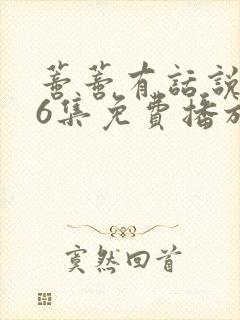 有話說
6集免費播放
寞然回首